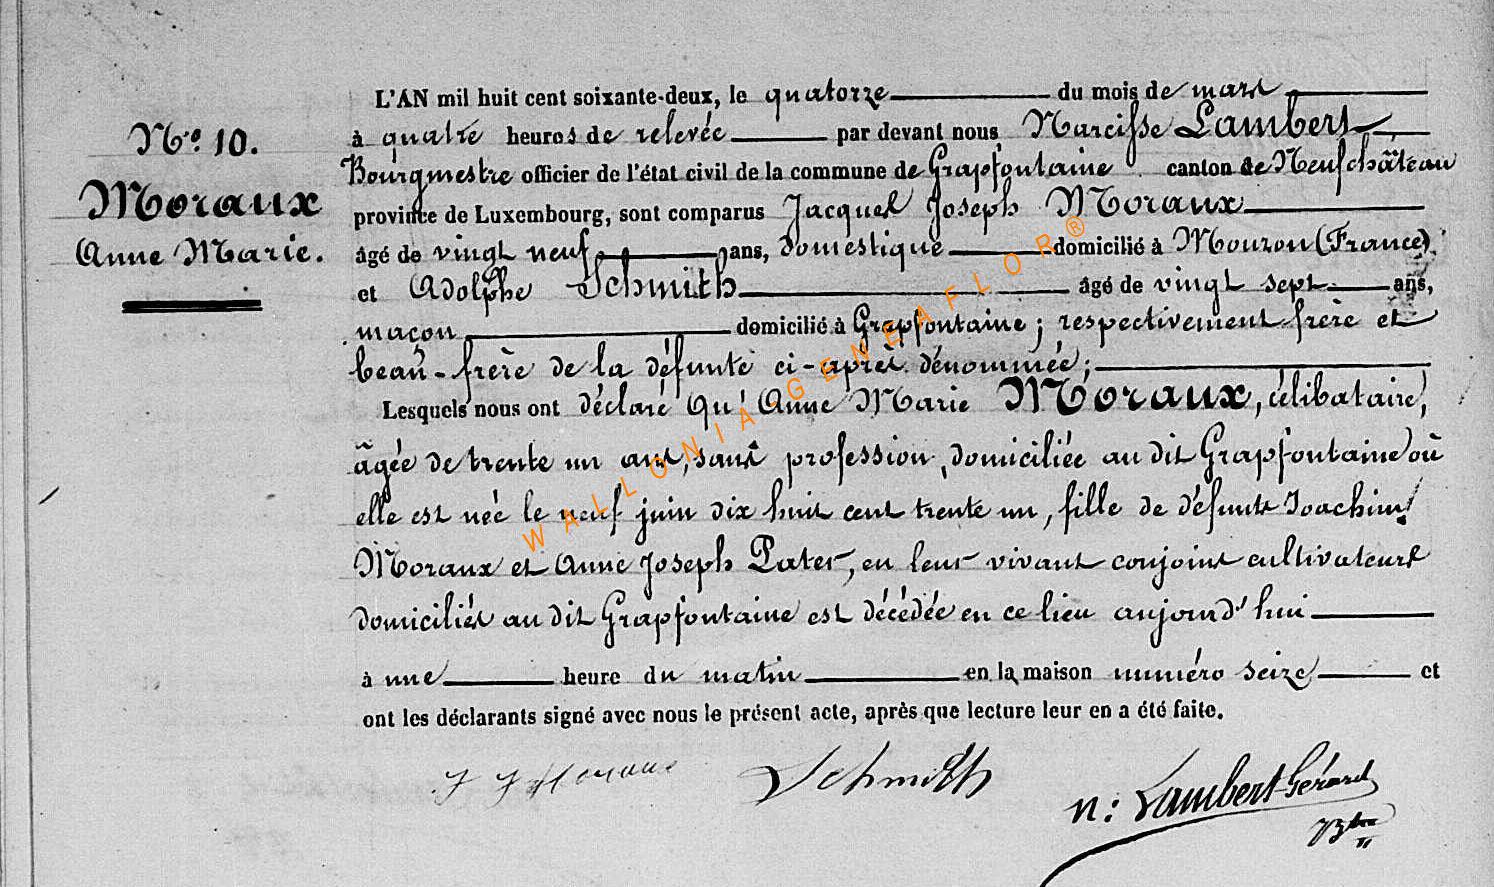 N.º 10.
Moraux
Anne Marie.
L'AN mil huit cent soixante-deux, le quatorze du mois de mars
à quatre heures de relevée par devant nous Narcisse Lambert
Bourgmestre officier de l'état civil de la commune de Grapfontaine canton de Neufchâteau
province de Luxembourg, sont comparus Jacques Joseph Moraux
âgé de vingt neuf ans, domestique domicilié à Mouzon (France)
et Adolphe Schmith âgé de vingt sept ans,
maçon domicilié à Grapfontaine ; respectivement frère et
beau-frère de la défunte ci-après dénommée ;
Lesquels nous ont déclaré qu'Anne Marie Moraux, célibataire,
âgée de trente un ans, sans profession, domiciliée au dit Grapfontaine où
elle est née le neuf juin dix huit cent trente un, fille de défunts Joachim
Moraux et Anne Joseph Pater, en leur vivant conjoints cultivateurs
domiciliés au dit Grapfontaine est décédée en ce lieu aujourd'hui
à une heure du matin en la maison numéro seize et
ont les déclarants signé avec nous le présent acte, après que lecture leur en a été faite.
J J Moraux Schmith n: Lambert-Gérard
Btre
WALLONIA-GENEAFLOR®